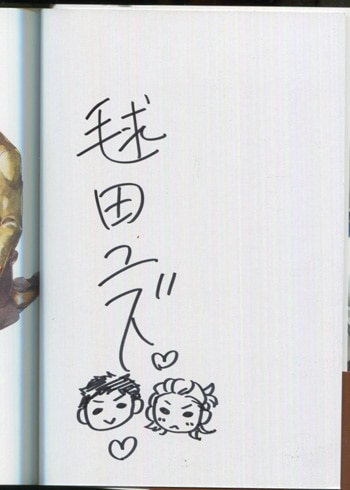 毬田ユズ